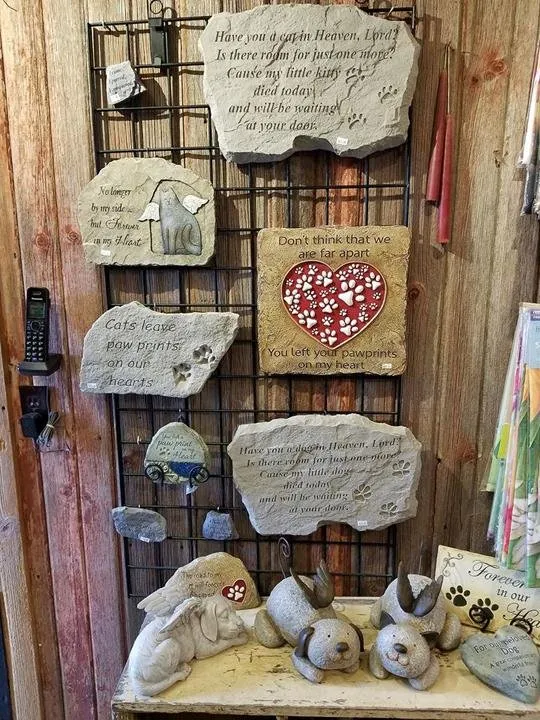 Have you a cat in Heaven, Lord?
Is there room for just one more?
Cause my little kitty
died today
and will be waiting
at your door.
No longer
by my side
but Forever
in my Heart
Don't think that we
are far apart
You left your pawprints
on my heart
Cats leave
paw prints
on our
hearts
paw print
Heart
Have you a dog in Heaven, Lord?
Is there room for just one more?
Cause my little dog
died today
and will be waiting
at your door.
The road to my
Forever
in our
For our beloved
Dog